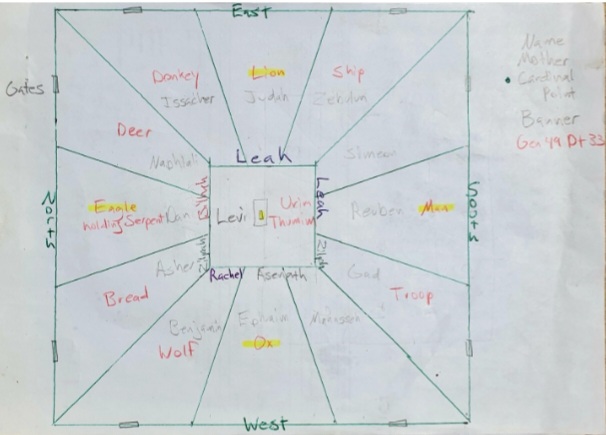 East
Gates
Donkey
Issacher
Lion
Judah
Ship
Zebulun
Name
Mother
Cardinal
Point
Banner
Gen 49 Dt 33
Deer
Naphtali
Leah
Simeon
North
Eagle
holding Serpent
Dan
Bilhah
Levi
Urim
Thummim
Leah
Reuben
Man
South
Asher
Zilpah
Rachel
Asenath
Zilpah
Gad
Bread
Troop
Benjamin
Wolf
Ephraim
Ox
Manasseh
West